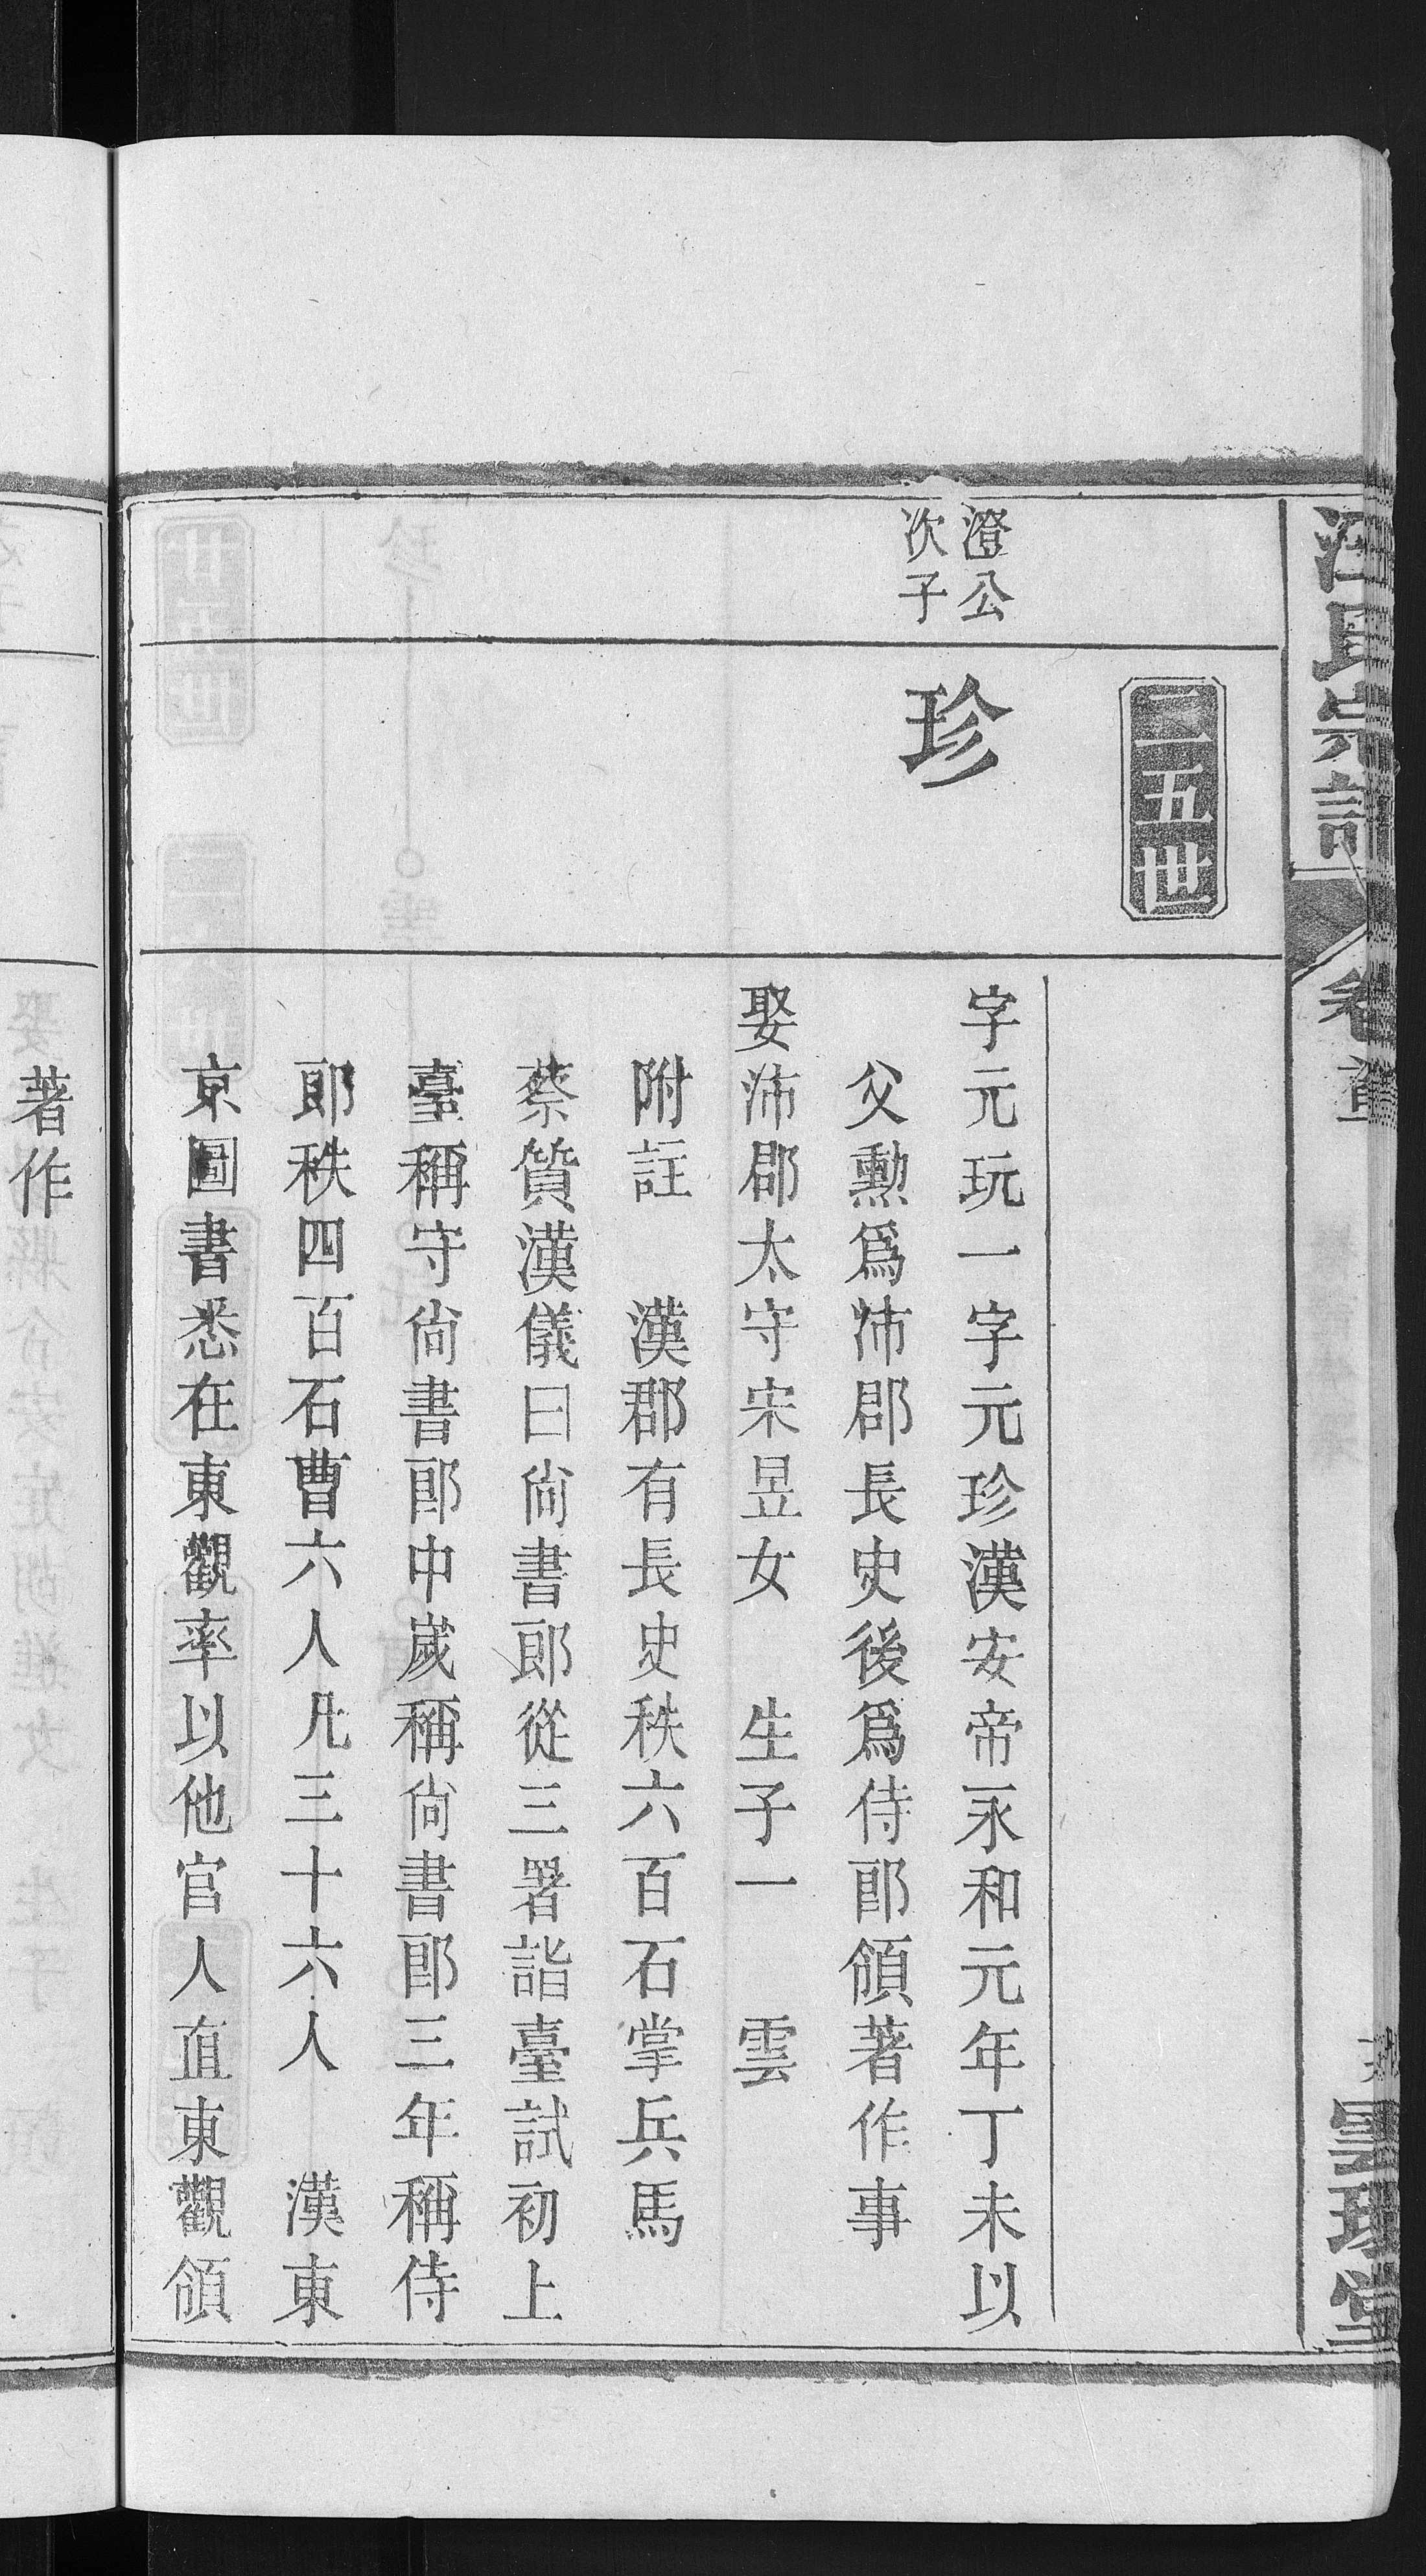 汪氏宗譜
卷壹
雲瑞堂
二五世
澄公
次子
珍
字元玩一字元珍漢安帝永和元年丁未以
父勳爲沛郡長史後爲侍郎領著作事
娶沛郡太守宋昱女　生子一　雲
附註　漢郡有長史秩六百石掌兵馬
蔡質漢儀曰尙書郎從三署詣臺試初上
臺稱守尙書郎中歲稱尙書郎三年稱侍
郎秩四百石曹六人凡三十六人　漢東
京圖書悉在東觀率以他官人直東觀領
著作